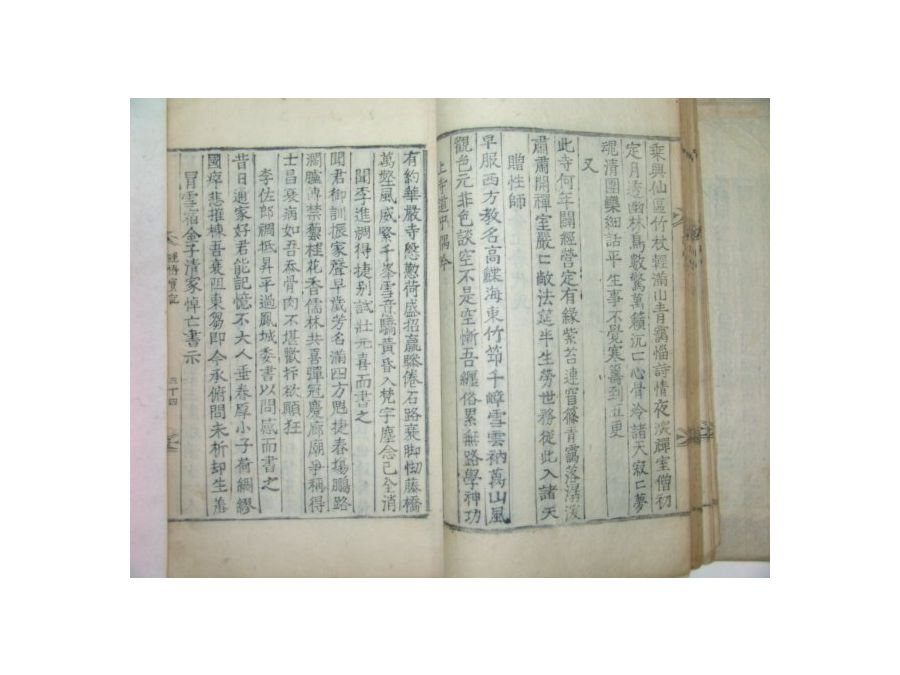 乘興仙區竹杖輕滿山靑靄惱詩情夜深禪室僧初
定月湧幽林鳥數驚萬籟沉〻心骨冷諸天寂〻夢
魂清團欒細話平生事不覺寒籌到五更
又
此寺何年闢經營定有緣紫苔連窅篠靑靄落潺湲
肅肅開禪室嚴〻敞法筵半生勞世務從此入諸天
贈性師
早服西方敎名高鰈海東竹筇千嶂雪雲衲萬山風
觀色元非色談空不是空慚吾纏俗累無路學神功
上寺道中偶吟
有約華嚴寺慇懃荷盛招羸驂倦石路衰脚怯藤橋
萬壑風威繁千峯雪意驕黃昏入梵宇塵念已全消
聞李進凋得捷别試壯元喜而書之
聞君御訓振家聲早歲芳名滿四方魁捷春場鵬路
濶臚傳禁籞桂花香儒林共喜彈冠慶廊廟爭稱得
士昌衰病如吾忝骨肉不堪歡抃欲顚狂
李佐郎觀抵昇平過鳳城委書以問感而書之
昔日通家好君能記憶不大人垂眷厚小子荷綢繆
國瘁悲摧棟吾衰阻束芻即今承俯問未析却生羞
冒雪宿金子清家悼亡書示
三十四